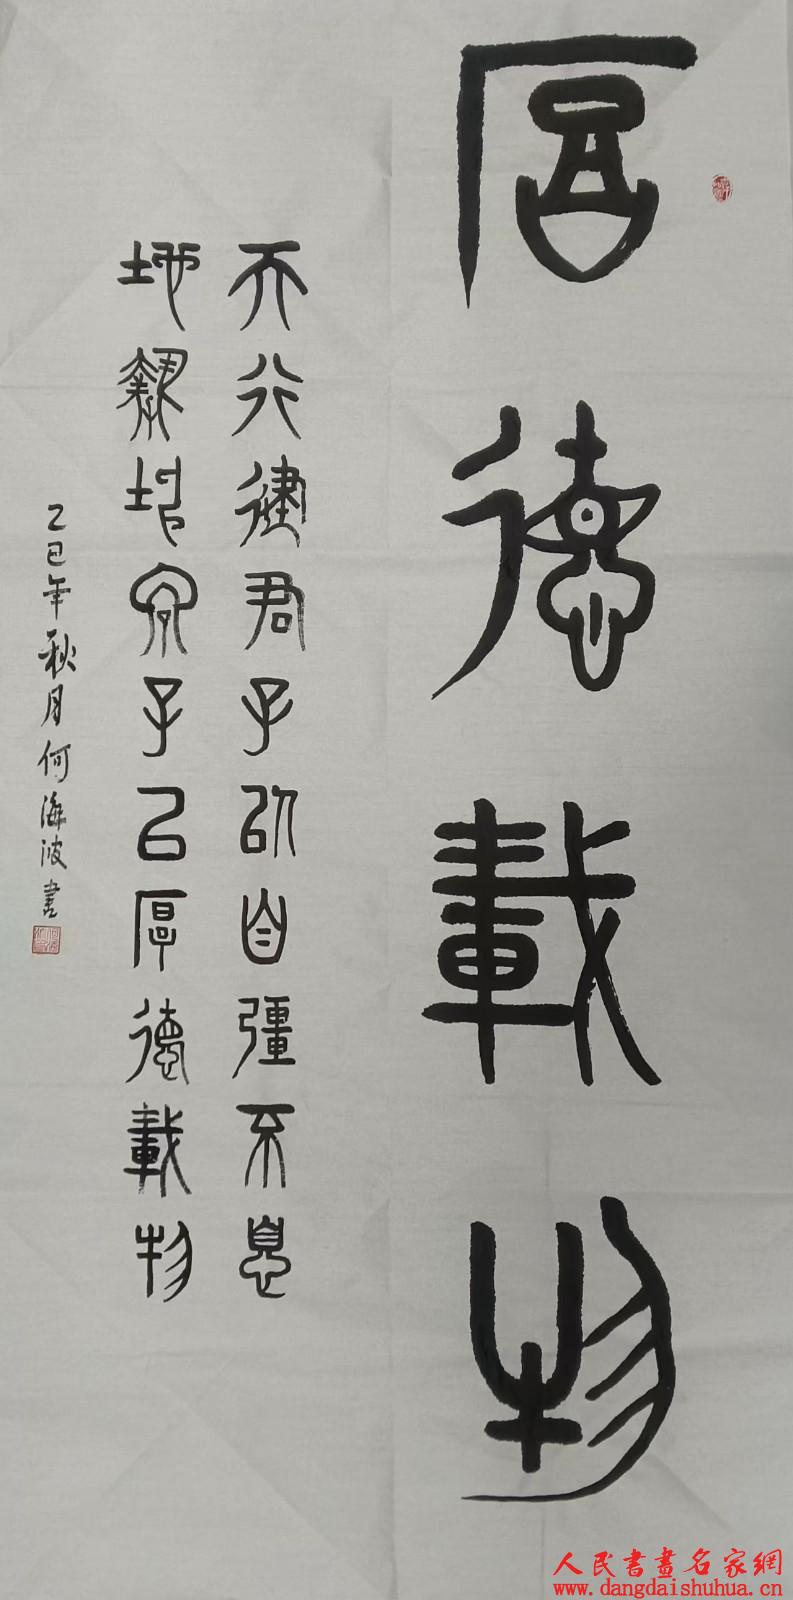 厚德載物
天行健君子以自彊不息
地埶坤君子以厚德載物
乙巳年秋月何海波書
人民書畫名家網
www.dangdaishuhua.cn